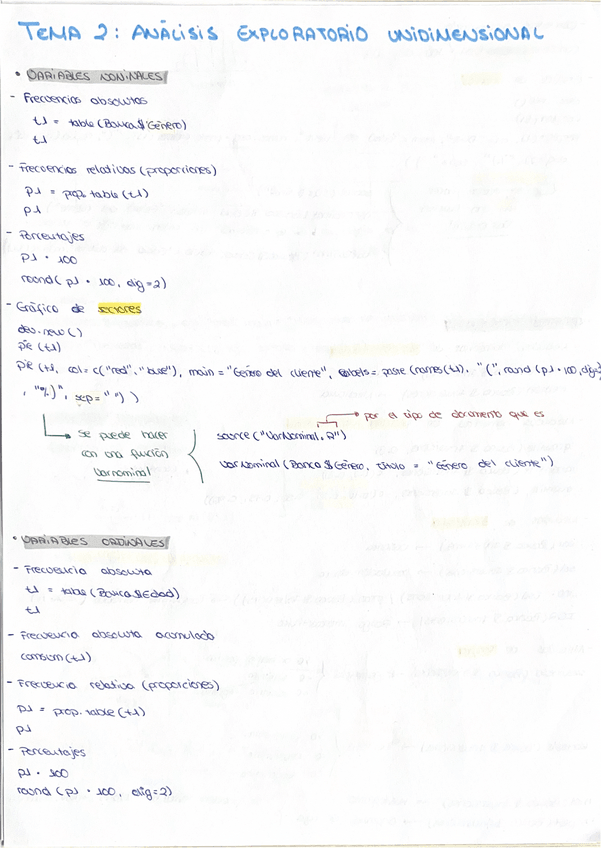 TEMA 2: ANÁLISIS EXPLORATORIO UNIDIMENSIONAL
• VARIABLES NOMINALES
- Frecuencias absolutas
t1 = table (Banca$Género)
t1
- Frecuencias relativas (proporciones)
p1 = prop.table (t1)
p1
- Porcentajes
p1 * 100
round( p1 * 100, dig=2)
- Gráfico de sectores
dev.new ()
pie (t1)
pie (t1, col= c("red", "blue"), main = "Género del cliente", labels= paste (names(t1), "(", round (p1*100, dig=2)
, "%)", sep= " ") )
→ por el tipo de documento que es
Se puede hacer con una función Varnominal
source ("VarNominal.R")
VarNominal (Banca$Género, titulo = "Género del cliente")
• VARIABLES ORDINALES
- Frecuencia absoluta
t1 = table (Banca$Edad)
t1
- Frecuencia absoluta acumulada
cumsum (t1)
- Frecuencia relativa (proporciones)
p1 = prop.table (t1)
p1
- Porcentajes
p1 * 100
round ( p1 * 100, dig=2)